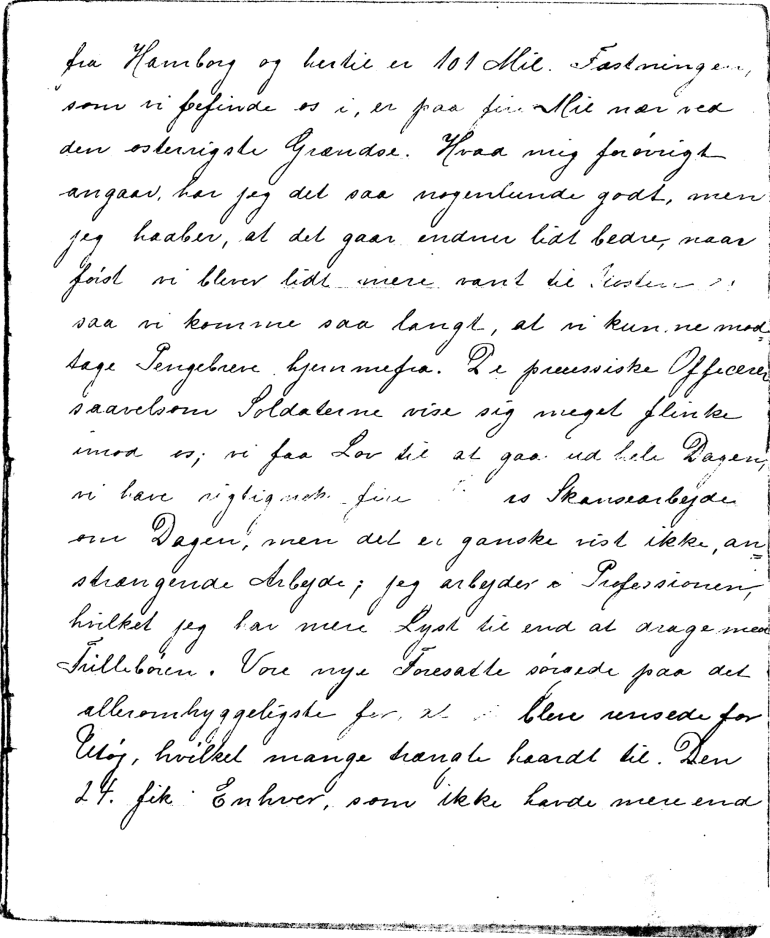 fra Hamborg og hertil er 101 Mil. Fæstningen,
som vi befinde os i, er paa fire Mil nær ved
den østerrigste Grændse. Hvad mig forøvrigt
angaar, har jeg det saa nogenlunde godt, men
jeg haaber, at det gaar endnu lidt bedre, naar
først vi blever lidt mere vant til Kosten
saa vi komme saa langt, at vi kunne mod=
tage Pengebreve hjemmefra. De preussiske Officerer
saavelsom Soldaterne vise sig meget flinke
imod os; vi faa Lov til at gaa ud hele Dagen,
vi have rigtignok fire Skansearbejde
om Dagen, men det er ganske vist ikke, an=
strængende Arbejde; jeg arbejder i Professionen,
hvilket jeg har mere Lyst til end at drage med
Trillebøren. Vore nye Foresatte sørgede paa det
alleromhyggeligste for, at vi bleve rensede for
Utøj, hvilket mange trængte haardt til. Den
24. fik Enhver, som ikke havde mere end